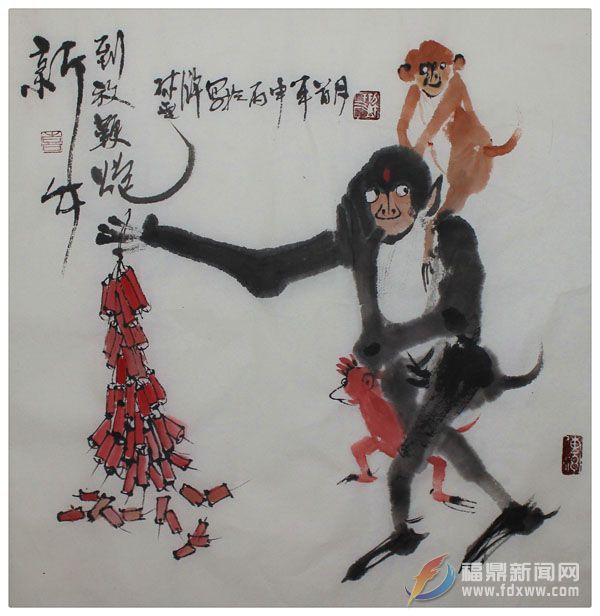 新年
到放鞭炮
写于丙申年首月
福鼎新闻网
www.fdxww.com